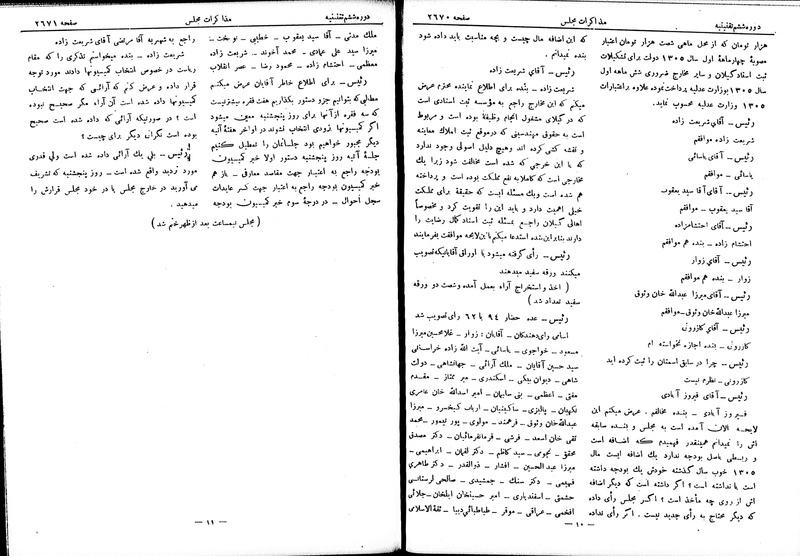 دوره ششم تقنینیه
مذاکرات مجلس
صفحه ۲۶۷۰
هزار تومان که از محل ماهی شصت هزار تومان اعتبار
مصوبهٔ چهارماههٔ اول سال ۱۳۰۵ دولت برای تشکیلات
ثبت اسناد گیلان و سایر مخارج ضروری شش ماهه اول
سال ۱۳۰۵ بوزارت عدلیه پرداخت نموده علاوه بر اعتبارات
۱۳۰۵ وزارت عدلیه محسوب نماید.
رئیس – آقای شریعت زاده
شریعت زاده موافقم
رئیس – آقای یاسائی
یاسائی – موافقم
رئیس – آقای آقا سید یعقوب
آقا سید یعقوب – موافقم
رئیس – آقای احتشام زاده
احتشام زاده – بنده هم موافقم
رئیس – آقای زوار
زوار – بنده هم موافقم
رئیس – آقای میرزا عبدالله خان وثوق
میرزا عبدالله خان وثوق – موافقم
رئیس – آقای کازرونی
کازرونی – بنده اجازه نخواسته ام
رئیس – چرا در سابق اسمتان را ثبت کرده اید
کازرونی – نظرم نیست
رئیس – آقای فیروز آبادی
فیروز آبادی – بنده مخالفم . عرض میکنم این
لایحه الان آمده است به مجلس و بنده سابقه
اش را نمیدانم همینقدر فهمیدم که اضافه است
و ربطی باصل بودجه ندارد یک اضافه ایست مال
۱۳۰۵ خوب سال گذشته خودش یک بودجه داشته
است یا نداشته است ؟ اگر داشته است که دیگر اضافه
اش از روی چه مأخذ است ؟ اگر مجلس رأی داده
که دیگر محتاج به رأی جدید نیست . اگر رأی نداده
که این اضافه مال چیست و بچه مناسبت باید داده شود
بنده نمیدانم .
رئیس – آقای شریعت زاده
شریعت زاده – بنده برای اطلاع نماینده محترم عرض
میکنم که این مخارج راجع به مؤسسه ثبت اسنادی است
که در گیلان مشغول انجام وظیفهٔ بوده است و مربوط
است به حقوق مهندسینی که در موقع ثبت املاک معاینه
و نقشه کشی کرده اند وهیچ دلیل اصولی وجود ندارد
که با این خرجی که شده است مخالفت شود زیرا یک
مخارجی است که کاملا به نفع مملکت بوده است و پرداخته
هم شده است ویک مسئله ایست که حقیقة برای مملکت
خیلی اهمیت دارد و باید این را تقویت کرد و مخصوصاً
اهالی گیلان راجع بمسئله ثبت اسناد کمال رضایت را
دارند بنابراین بنده استدعا میکنم با این لایحه موافقت بفرمایند
رئیس – رأی گرفته میشود با اوراق آقایانیکه تصویب
میکنند ورقه سفید میدهند
( اخذ و استخراج آراء بعمل آمده وشصت دو ورقه
سفید تعداد شد )
رئیس – عده حضار ۹۴ با ۶۲ رأی تصویب شد
اسامی رأی دهندگان – آقایان : زوار – غلامحسین میرزا
مسعود – خواجوی – یاسائی – آیت الله زاده خراسانی
سید حسین آقایان – ملک آرائی – جهانشاهی – دولت
شاهی – دیوان بیگی – اسکندری – میر ممتاز – مقدم
مفتی – اعظمی – بنی سلیمان – امیر اسدالله خان عامری
نگهبان – پالیزی – ساکینیان – ارباب کیخسرو – میرزا
عبدالله خان وثوق – فرهمند – مولوی – پور تیمور – محمد
تقی خان اسعد – فرشی – فرمانفرمائیان – دکتر مصدق
محقق – نجومی – سید کاظم – دکتر لقمان – ابراهیمی –
میرزا عبدالحسین – افشار – ذوالقدر – دکتر طاهری
فهیمی – دکتر سنک – جمشیدی – صالحی لرستانی
حشمتی – اسفندیاری – امیر حسینخان ایلخان – جلائی
افخمی – عراقی – موقر – طباطبائی دیبا – ثقةالاسلامی
– ۱۰ –
دوره ششم تقنینیه
مذاکرات مجلس
صفحه ۲۶۷۱
ملک مدنی – آقا سید یعقوب – خطایی – نوبخت –
میرزا سید علی عمادی – محمد آخوند – شریعت زاده
معظمی – احتشام زاده – محمود رضا – عصر انقلاب
رئیس – برای اطلاع خاطر آقایان عرض میکنم
مطالبی که بتوانیم جزو دستور بگذاریم هفت فقره بیشتر نیست
که سه فقره از آنها برای روز پنجشنبه معین میشود
اگر کمیسیونها بزودی انتخاب نشوند در اواخر هفتهٔ آتیه
دیگر مجبور خواهیم بود جلساتمان را تعطیل کنیم
جلسهٔ آتیه روز پنجشنبه دستور اولا خبر کمیسیون
بودجه راجع به اعتبار جهت مقاصد معارفی – باز هم
خبر کمیسیون بودجه راجع به اعتبار جهت کسر عایدات
سجل احوال – در درجهٔ سوم خبر کمیسیون بودجه
راجع به شهریه آقا مرتضی آقای شریعت زاده
شریعت زاده – بنده میخواستم تذکری را که مقام
ریاست در خصوص انتخاب کمیسیونها دادند مورد توجه
قرار داده و عرض کنم که آرائی که جهت انتخاب
کمیسیونها داده شده است آن آراء مگر صحیح نبوده
است ؟ در صورتیکه آرائی که داده شده است صحیح
بوده است نگرانی دیگر برای چیست ؟
رئیس – بلی یک آرائی داده شده است ولی قدری
مورد تردید واقع شده است – روز پنجشنبه که تشریف
می آورید در خارج مجلس یا در خود مجلس قرارش را
میدهید .
( مجلس نیمساعت بعد از ظهر ختم شد )
– ۱۱ –